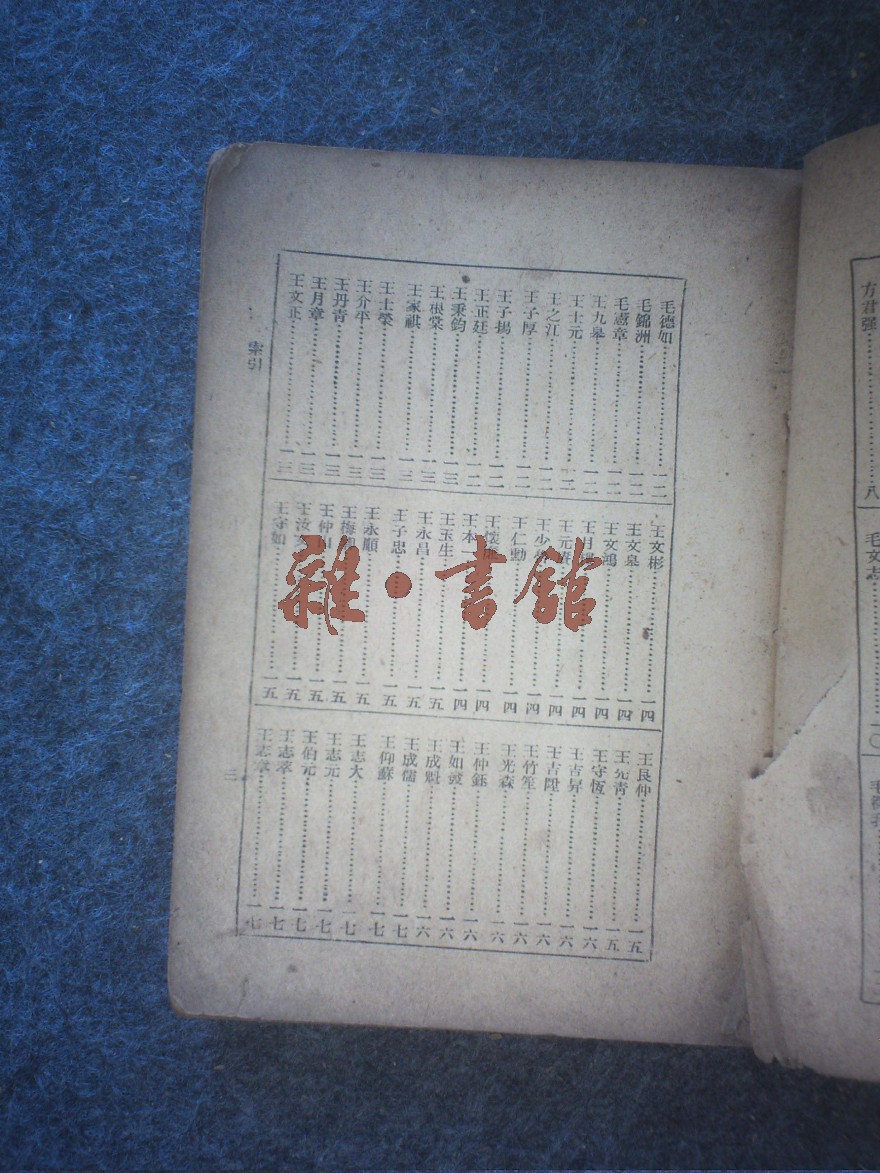 毛德如 一二
毛錦洲 一二
毛憲章 一二
王九皋 一二
王士元 一二
王之江 一二
王子厚 一二
王子揚 一二
王正廷 一二
王秉鈞 一三
王根棠 一三
王家祺 一三
王士榮 一三
王介平 一三
王丹青 一三
王月章 一三
王文正 一三
王文彬 一四
王文皋 一四
王文鴻 一四
王月 一四
王元 一四
王少 一四
王仁勳 一四
王懷 一四
王本 一四
王玉生 一五
王永昌 一五
王子忠 一五
王永順 一五
王梅 一五
王仲山 一五
王汝 一五
王守如 一五
王艮仲 一五
王 青 一五
王守恆 一六
王吉昇 一六
王吉陞 一六
王竹笙 一六
王光森 一六
王仲鈺 一六
王如發 一六
王成魁 一六
王成儒 一七
王仰蘇 一七
王志大 一七
王志元 一七
王伯元 一七
王志莘 一七
王志 一七
索引
三
方君强 八
毛文志 一〇
毛
雜·書館